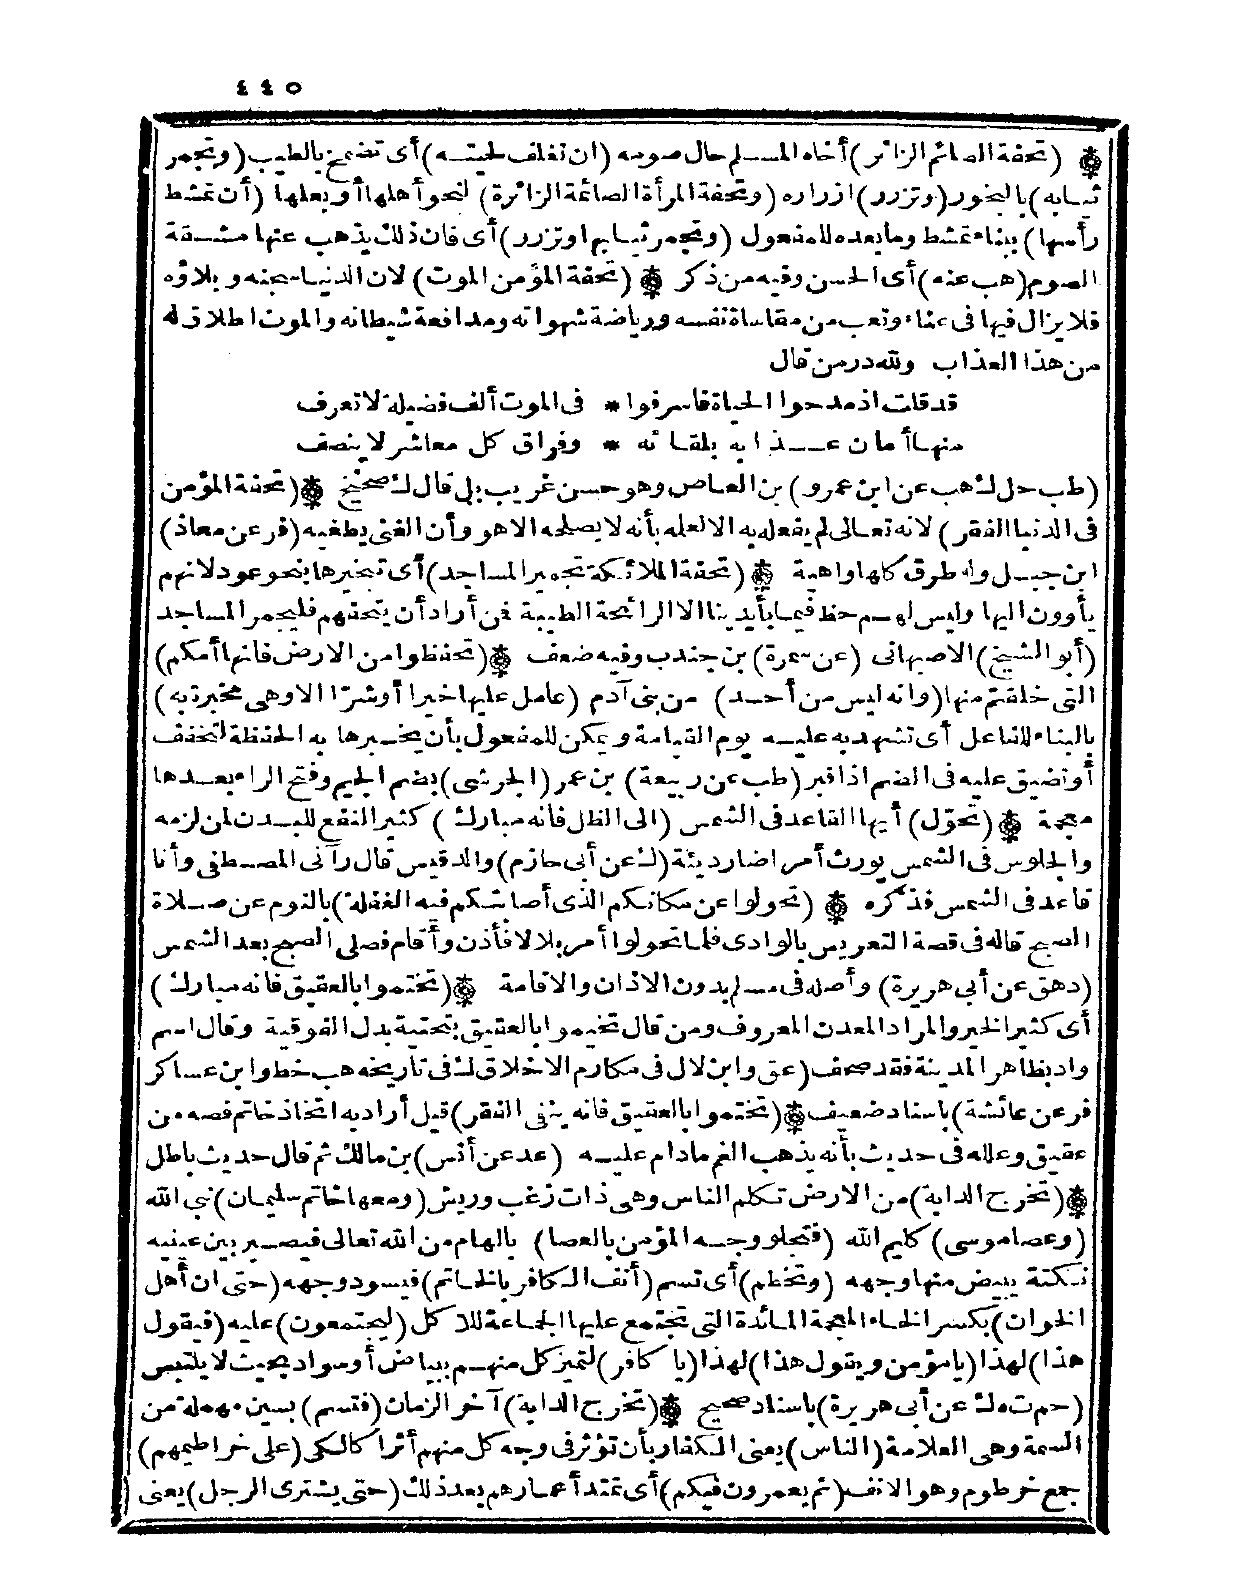 ٤٤٥
(تحفة الصائم الزائر) أخاه المسلم حال صومه (ان تغلف لحيته) أى تضمخ بالطيب (وتجمر
ثيابه) بالبخور (وتزرر) ازراره (وتحفة المرأة الصائمة الزائرة) لنحو أهلها أو بعلها (أن تمشط
رأسها) ببناء تمشط وما بعده للمفعول (وتجمر ثيابها وتزرر) أى فان ذلك يذهب عنها مشقة
الصوم (هب عنه) أى الحسن وفيه من ذكر ۞ (تحفة المؤمن الموت) لان الدنيا سجنه وبلاؤه
فلا يزال فيها فى عناء وتعب من مقاساة نفسه ورياضة شهواته ومدافعة شيطانه والموت اطلاق له
من هذا العذاب ولله در من قال
قد قلت اذ مدحوا الحياة فاسرفوا * فى الموت ألف فضيلة لا تعرف
منها أمان عــذابه بلقائه * وفراق كل معاشر لا ينصف
(طب حل ك هب عن ابن عمرو) بن العاص وهو حسن غريب بل قال ك صحيح ۞ (تحفة المؤمن
فى الدنيا الفقر) لانه تعالى لم يفعله به الا لعلمه بأنه لا يصلحه الا هو وأن الغنى يطغيه (فر عن معاذ)
ابن جبــل وله طرق كلها واهية ۞ (تحفة الملائكة تجمير المساجد) أى تبخيرها بنحو عود لانهم
يأوون اليها وليس لهــم حظ فيما بأيدينا الا الرائحة الطيبة فمن أراد أن يتحفهم فليجمر المساجد
(أبو الشيخ) الاصبهانى (عن سمرة) بن جندب وفيه ضعف ۞ (تحفظوا من الارض فانها أمكم)
التى خلقتم منها (وانه ليس من أحــد) من بنى آدم (عامل عليها خيرا أو شرّا الا وهى مخبرة به)
بالبناء للفاعل أى تشهد به عليــه يوم القيامة ويمكن للمفعول بأن يخــبرها به الحفظة لتخفف
أو تضيق عليه فى الضم اذا قبر (طب عن ربيعة) بن عمر (الجرشى) بضم الجيم وفتح الراء بعــدها
معجمة ۞ (تحوّل) أيها القاعد فى الشمس (الى الظل فانه مبارك) كثير النفع للبــدن لمن لزمه
والجلوس فى الشمس يورث أمراضا رديئة (ك عن أبى حازم) والد قيس قال رآنى المصــطفى وأنا
قاعد فى الشمس فذكره ۞ (تحولوا عن مكانكم الذى أصابتكم فيه الغفلة) بالنوم عن صــلاة
الصبح قاله فى قصة التعريس بالوادى فلما تحولوا أمر بلالا فأذن وأقام فصلى الصبح بعد الشمس
(د هق عن أبى هريرة) وأصله فى مســلم بدون الاذان والاقامة ۞ (تختموا بالعقيق فانه مبارك)
أى كثير الخير والمراد المعدن المعروف ومن قال تخيموا بالعقيق بتحتية بدل الفوقية وقال اسم
واد بظاهر المدينة فقد صحف (عق وابن لال فى مكارم الاخلاق ك فى تاريخه هب خط وابن عساكر
فر عن عائشة) باسناد ضعيف ۞ (تختموا بالعقيق فانه ينفى الفقر) قيل أراد به اتخاذ خاتم فصه من
عقيق وعلله فى حديث بأنه يذهب الغم ما دام عليــه (عد عن أنس) بن مالك ثم قال حديث باطل
۞ (تخرج الدابة) من الارض تكلم الناس وهى ذات زغب وريش (ومعها خاتم سليمان) نبى الله
(وعصا موسى) كليم الله (فتجلو وجــه المؤمن بالعصا) بالهام من الله تعالى فيصــير بين عينيه
نــكتة يبيض منها وجهه (وتخطم) أى تسم (أنف الــكافر بالخاتم) فيسود وجهه (حتى ان أهل
الخوان) بكسر الخاء المعجمة المــائدة التى تجتمع عليها الجماعة للاكل (ليجتمعون) عليه (فيقول
هذا) لهذا (يا مؤمن ويقول هذا) لهذا (يا كافر) لتميز كل منهــم ببياض أو سواد بحيث لا يلتبس
(حم ت ه ك عن أبى هريرة) باسناد صحيح ۞ (تخرج الدابة) آخر الزمان (فتسم) بسين مهملة من
السمة وهى العلامة (الناس) يعنى الــكفار بأن تؤثر فى وجه كل منهم أثرا كالكى (على خراطيمهم)
جمع خرطوم وهو الانف (ثم يعمرون فيكم) أى تمتد أعمارهم بعد ذلك (حتى يشترى الرجل) يعنى